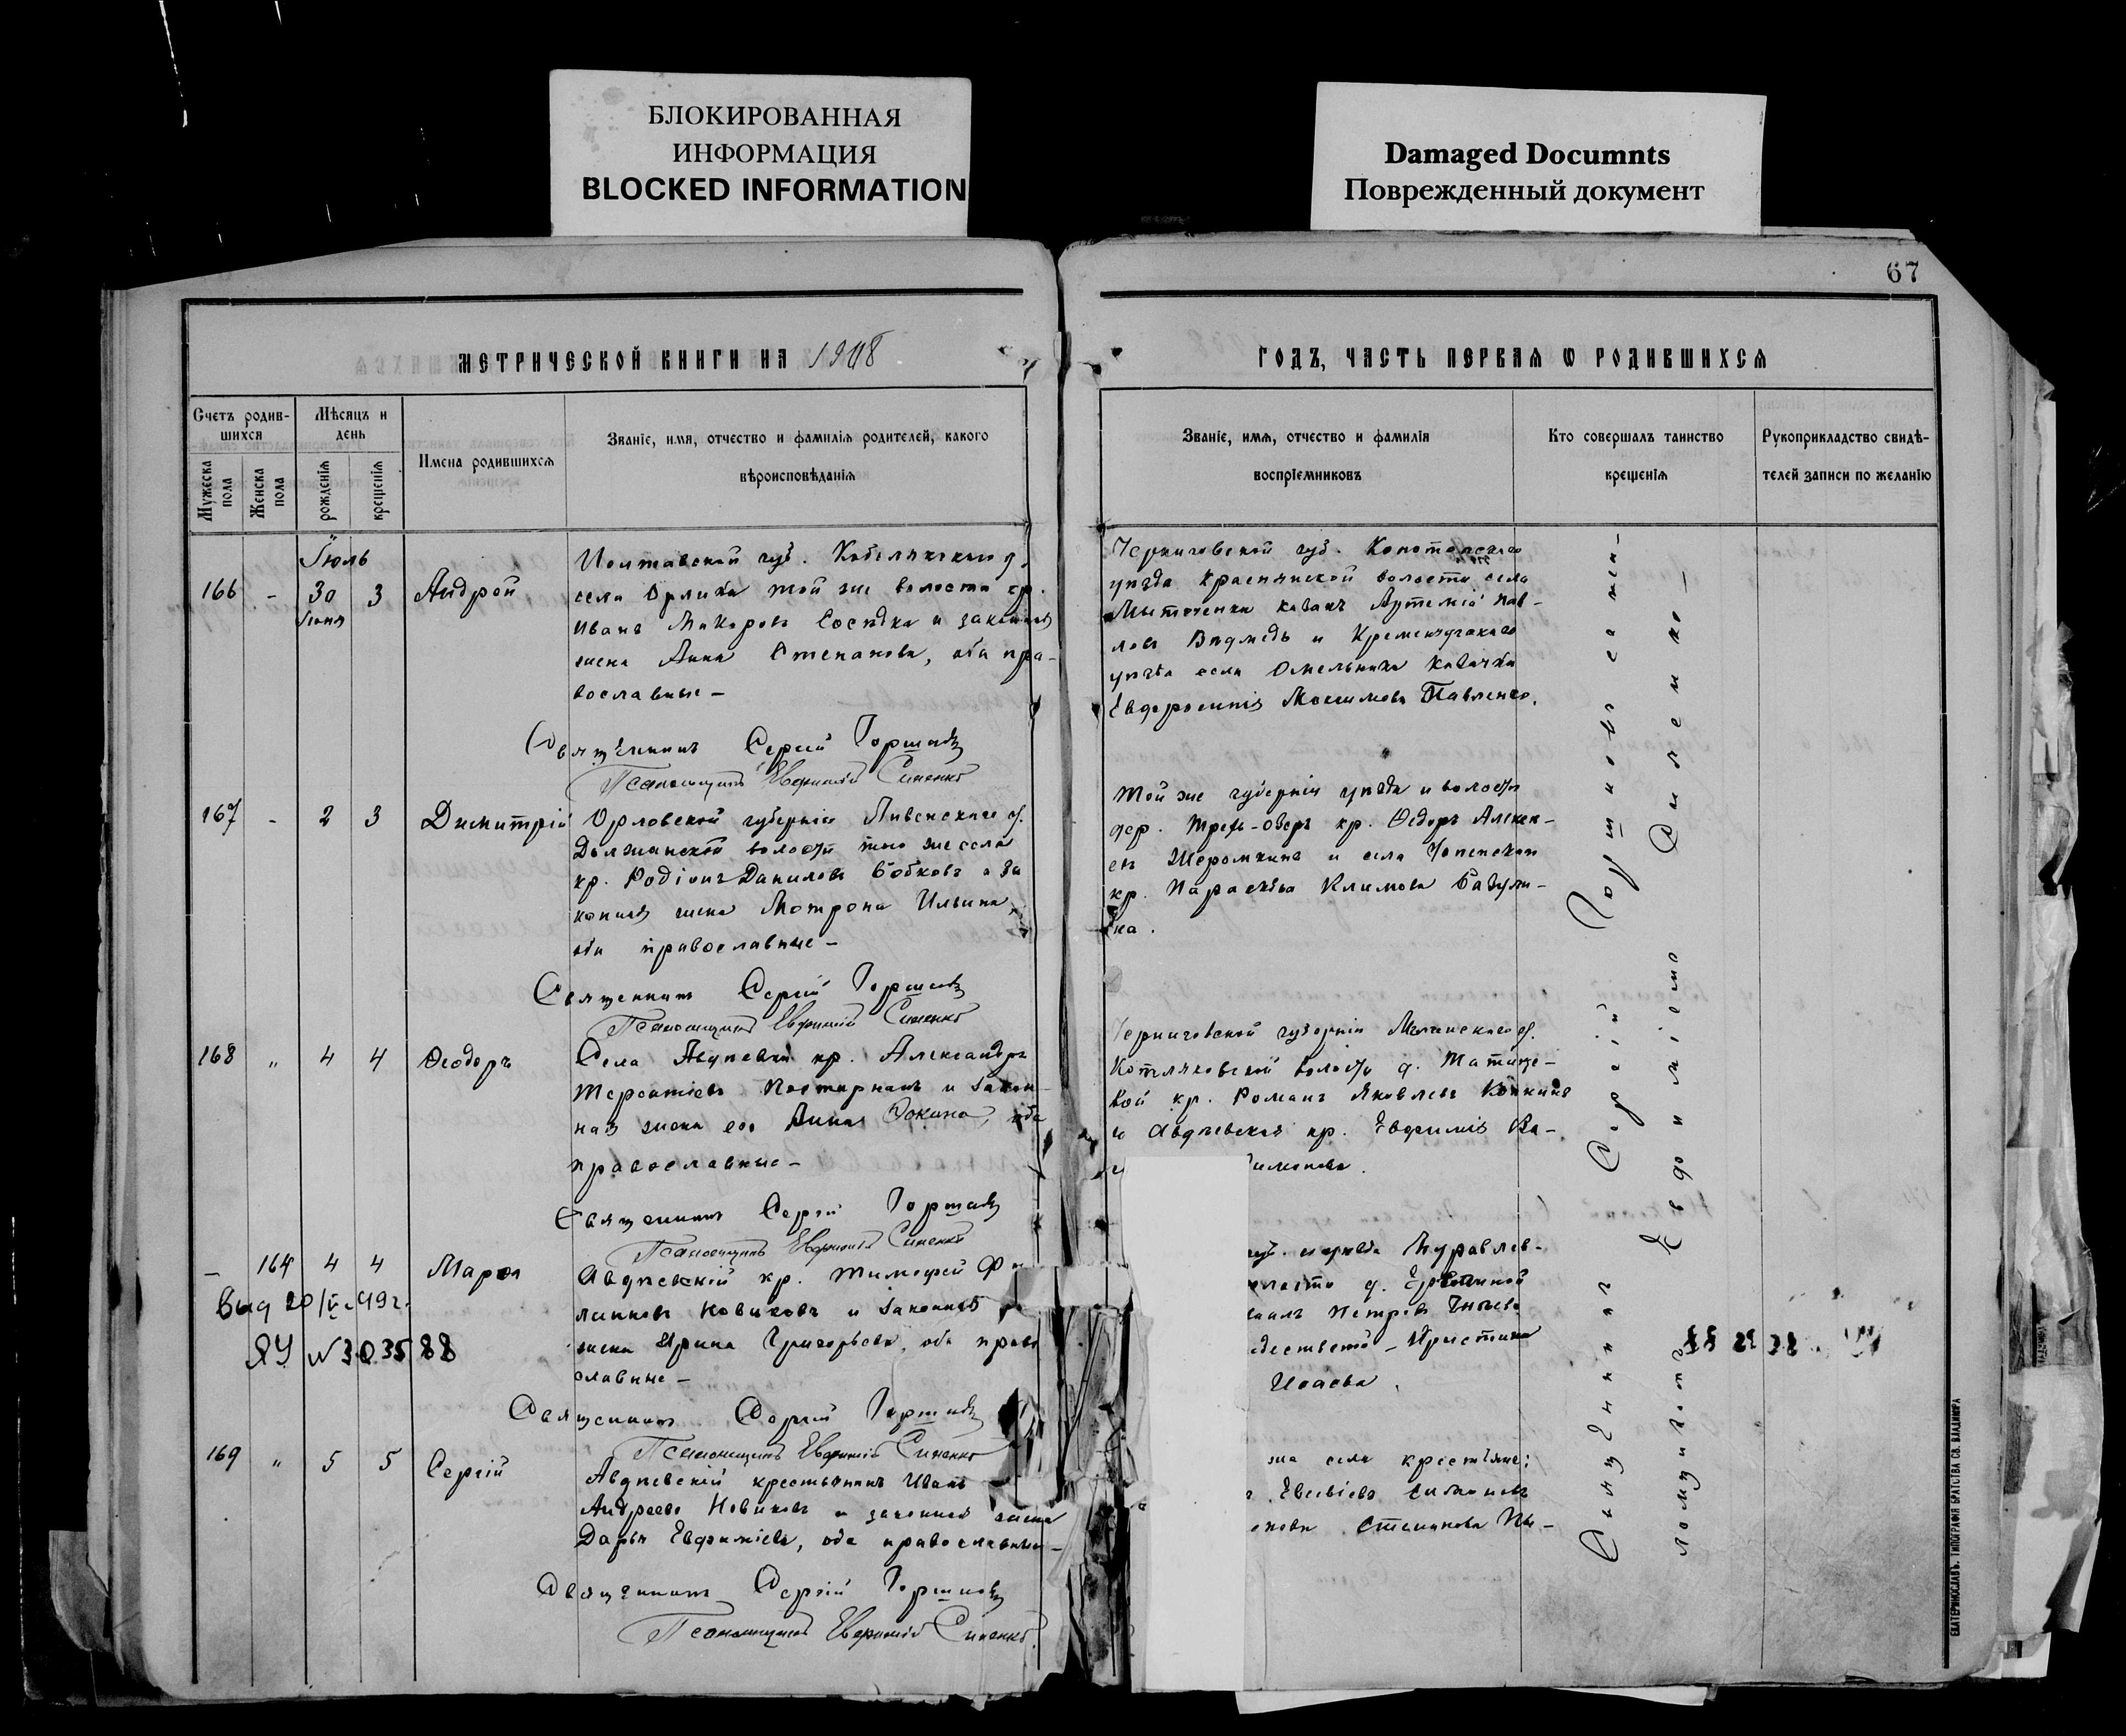 БЛОКИРОВАННАЯ
ИНФОРМАЦИЯ
BLOCKED INFORMATION
Damaged Documnts
Поврежденный документ
67
МЕТРИЧЕСКОЙ КНИГИ НА 1908
ГОДЪ, ЧАСТЬ ПЕРВАЯ Ѡ РОДИВШИХСЯ
Счетъ родив-
шихся
Мужеска
пола
Женска
пола
Мѣсяцъ и
день
рожденія
крещенія
Имена родившихся
Званіе, имя, отчество и фамилія родителей, какого
вѣроисповѣданія
Званіе, имя, отчество и фамилія
воспріемниковъ
Кто совершалъ таинство
крещенія
Рукоприкладство свидѣ-
телей записи по желанію
Іюль
166 - 30 3 Андрей
Іюня
Полтавской губ. Кобелякскаго у.
села Орлика той же волости кр.
Иванъ Макаровъ Сосѣдка и законная
жена Анна Степанова, оба пра-
вославные -
Священникъ Сергій Горшковъ
Псаломщикъ Евфимій Синенко
Черниговской губ. Конотопскаго
уѣзда Краснянской волости села
козакъ Артемій Пав-
ловъ Ведмедь и Кременчугскаго
уѣзда села Омельника козачка
Евфросинія Максимова Павленко.
167 - 2 3 Димитрій
Орловской губерніи Ливенскаго у.
Должанской волости того же села
кр. Родіонъ Даниловъ Бобковъ и за
конная жена Матрона Ильина,
оба православные -
Священникъ Сергій Горшковъ
Псаломщикъ Евфимій Синенко
Той же губерніи уѣзда и волости
дер. кр. Ѳедоръ Алексѣ-
евъ и села
кр. Параскева Климова
на.
168 " 4 4 Ѳеодоръ
Села Авдѣевки кр. Александръ
Терентіевъ и закон-
ная жена его Анна Ѳокина, оба
православные -
Священникъ Сергій Горшковъ
Псаломщикъ Евфимій Синенко
Черниговской губерніи Мглинскаго у.
Котляковской волости д.
вой кр. Романъ Яковлевъ
и Авдѣевская кр. Евфимія Ва-
- 164 4 4 Марія
Выд 20/V-49 г.
ЯУ N 303588
Авдѣевскій кр. Тимофей Фи
липповъ Новиковъ и законная
жена Ирина Григорьева, оба право
славные -
Священникъ Сергій Горшковъ
Псаломщикъ Евфимій Синенко
уѣзда Журавлев-
Петровъ
- Христина
Исаева.
169 " 5 5 Сергій
Авдѣевскій крестьянинъ Иванъ
Андреевъ Новиковъ и законная жена
Дарья Евфиміева, оба православные -
Священникъ Сергій Горшковъ
Псаломщикъ Евфимій Синенко.
же села крестьяне:
Степанова
Священникъ Сергій Горшковъ съ пса-
ломщикомъ Евфиміемъ Синенко -
ЕКАТЕРИНОСЛАВЪ. ТИПОГРАФІЯ БРАТСТВА СВ. ВЛАДИМІРА